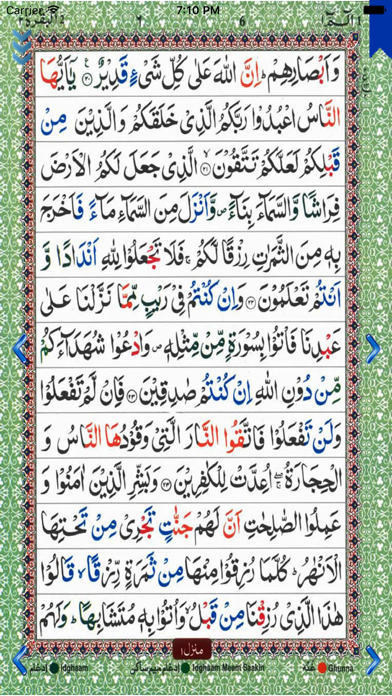 Carrier 7:10 PM
الٓمّٓ ١ ٦ ١ البقرة ٢
وَاَبْصَارِهِمْ ؕ اِنَّ اللّٰهَ عَلٰى كُلِّ شَیْءٍ قَدِیْرٌ ۟۠ ۲۰ یٰۤاَیُّهَا
النَّاسُ اعْبُدُوْا رَبَّكُمُ الَّذِیْ خَلَقَكُمْ وَالَّذِیْنَ مِنْ
قَبْلِكُمْ لَعَلَّكُمْ تَتَّقُوْنَ ۲۱ الَّذِیْ جَعَلَ لَكُمُ الْاَرْضَ
فِرَاشًا وَّالسَّمَآءَ بِنَآءً ۪ وَّاَنْزَلَ مِنَ السَّمَآءِ مَآءً فَاَخْرَجَ
بِهٖ مِنَ الثَّمَرٰتِ رِزْقًا لَّكُمْ ۚ فَلَا تَجْعَلُوْا لِلّٰهِ اَنْدَادًا وَّ
اَنْتُمْ تَعْلَمُوْنَ ۲۲ وَاِنْ كُنْتُمْ فِیْ رَیْبٍ مِّمَّا نَزَّلْنَا عَلٰى
عَبْدِنَا فَاْتُوْا بِسُوْرَةٍ مِّنْ مِّثْلِهٖ ۪ وَادْعُوْا شُهَدَآءَكُمْ
مِّنْ دُوْنِ اللّٰهِ اِنْ كُنْتُمْ صٰدِقِیْنَ ۲۳ فَاِنْ لَّمْ تَفْعَلُوْا
وَلَنْ تَفْعَلُوْا فَاتَّقُوا النَّارَ الَّتِیْ وَقُوْدُهَا النَّاسُ وَ
الْحِجَارَةُ ۖۚ اُعِدَّتْ لِلْكٰفِرِیْنَ ۲۴ وَبَشِّرِ الَّذِیْنَ اٰمَنُوْا وَ
عَمِلُوا الصّٰلِحٰتِ اَنَّ لَهُمْ جَنّٰتٍ تَجْرِیْ مِنْ تَحْتِهَا
الْاَنْهٰرُ ؕ كُلَّمَا رُزِقُوْا مِنْهَا مِنْ ثَمَرَةٍ رِّزْقًا ۙ قَالُوْا
هٰذَا الَّذِیْ رُزِقْنَا مِنْ قَبْلُ ۙ وَاُتُوْا بِهٖ مُتَشَابِهًا ؕ وَلَهُمْ
منزل ۱
ادغام Idghaam ادغام میم ساکن Idghaam Meem Saakin غنه Ghunna